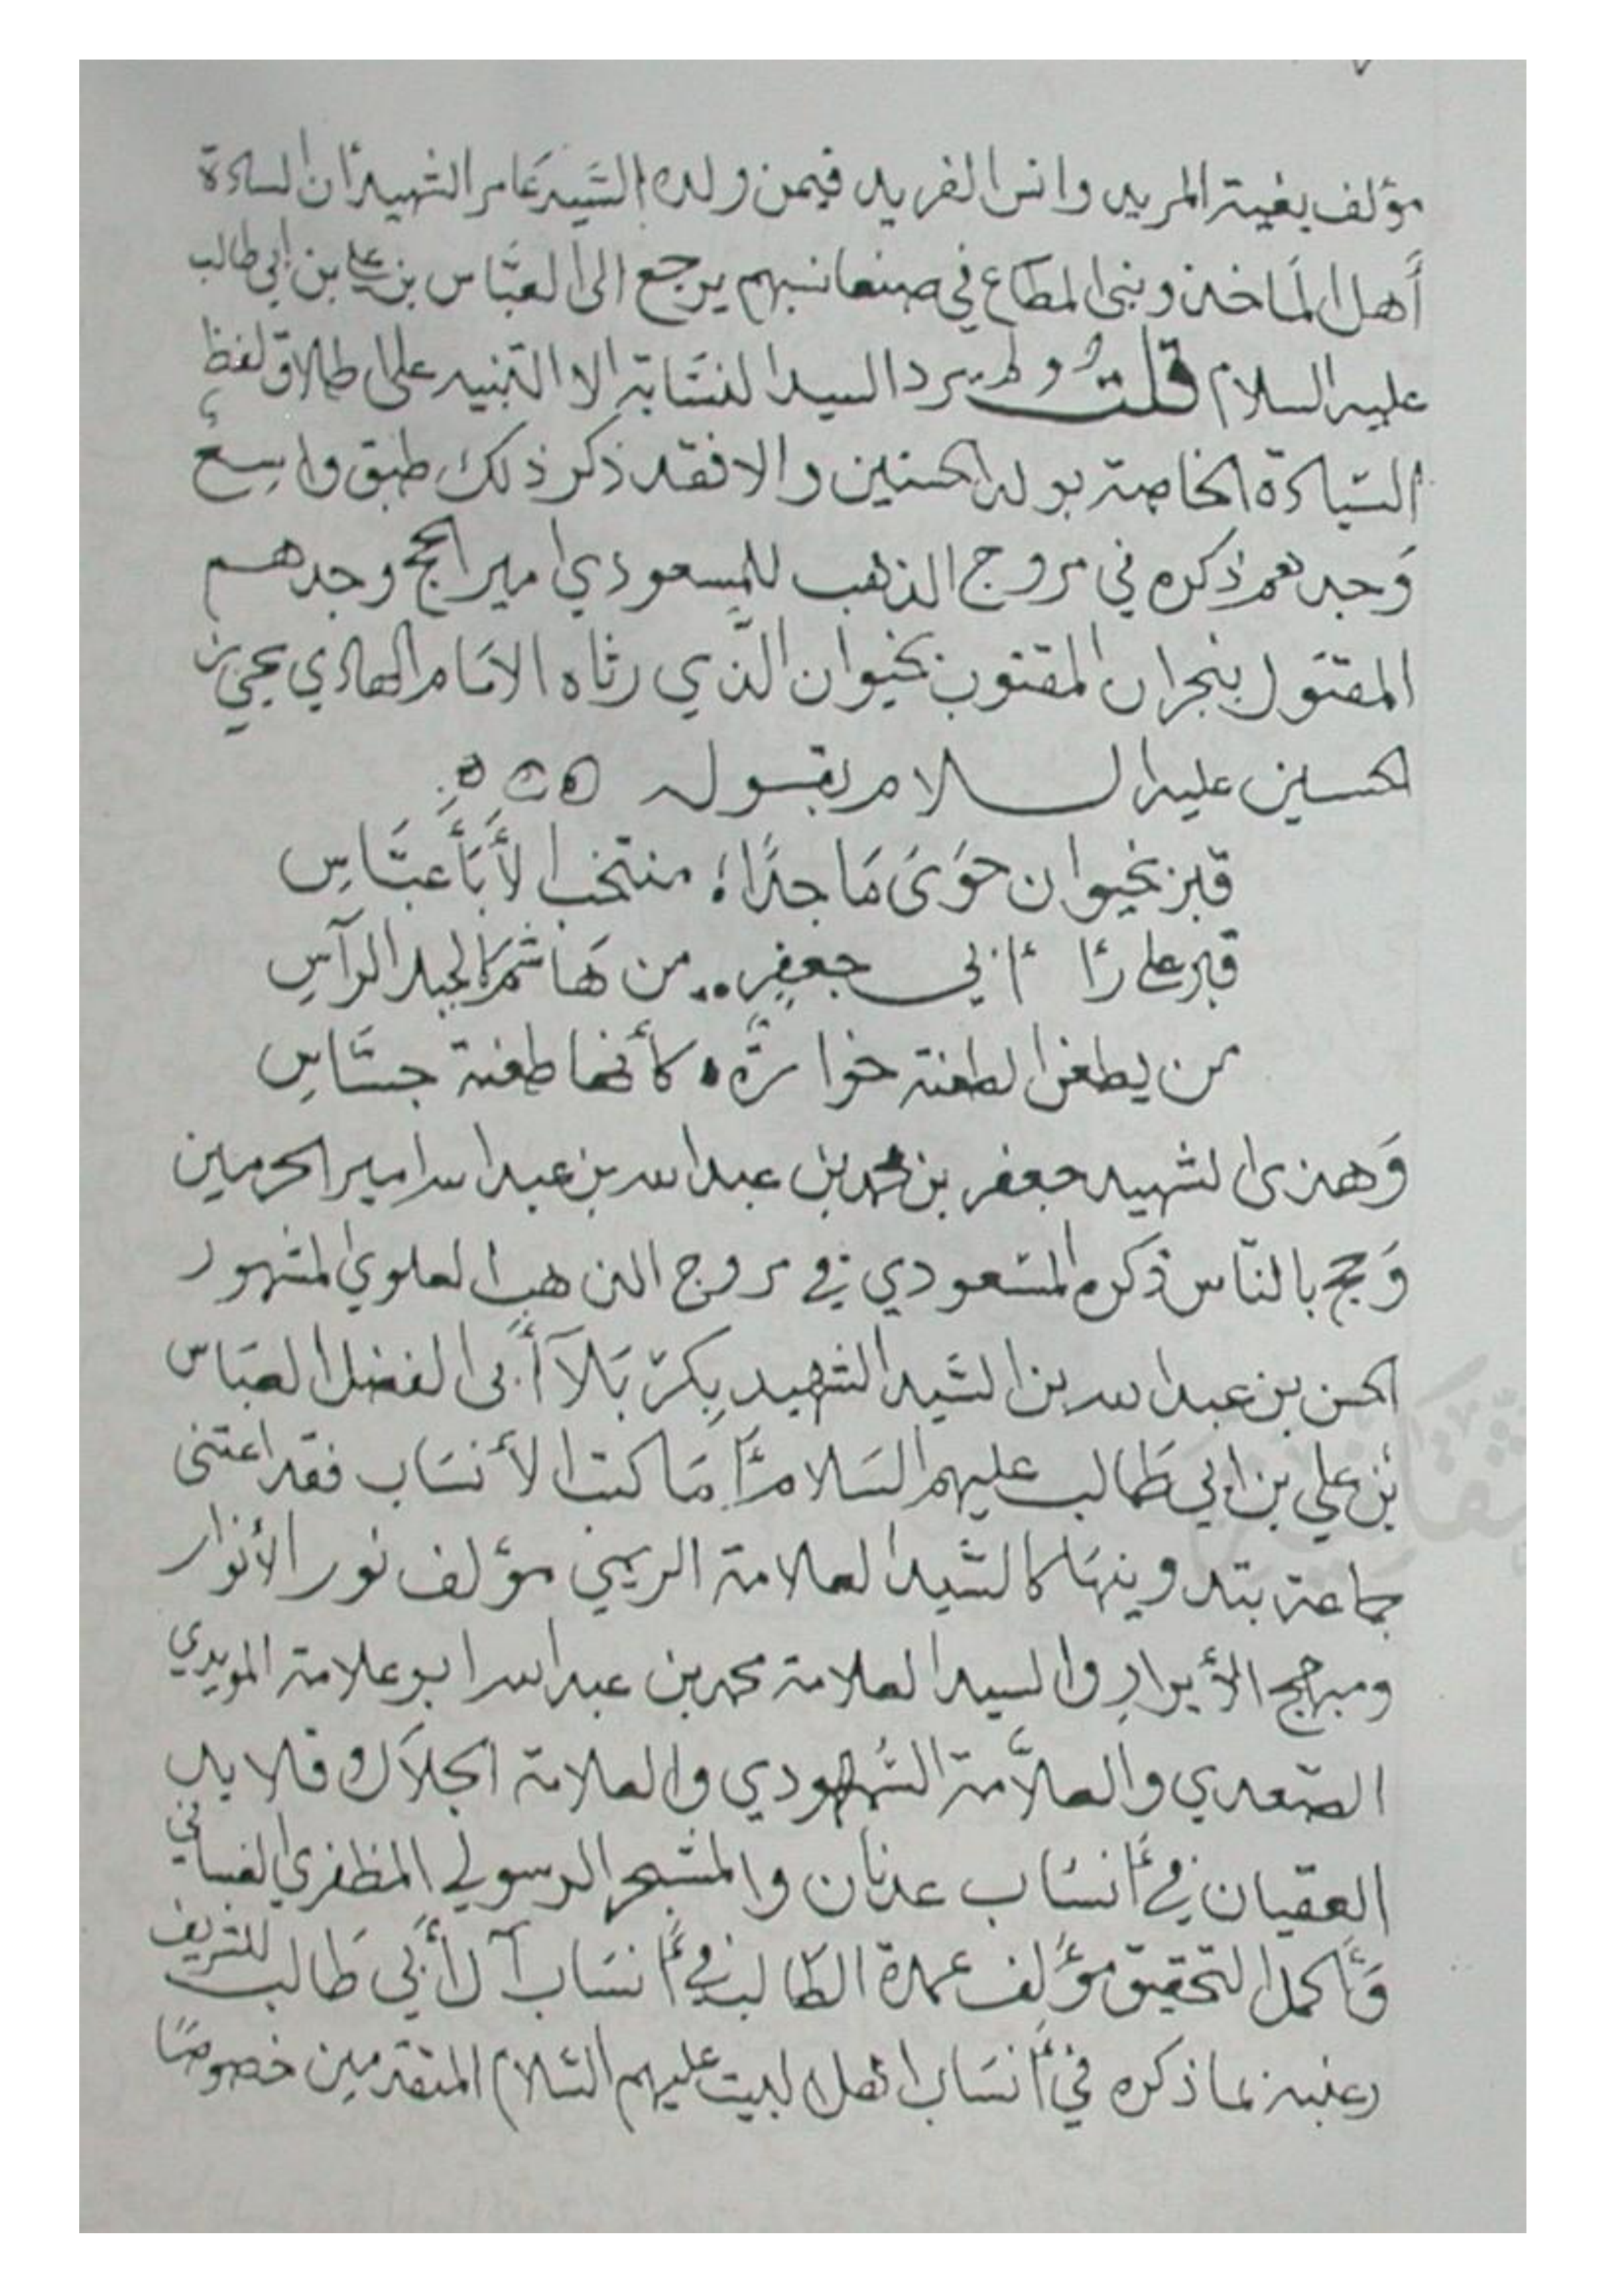 مؤلف بغية المريد وانس الفريد فيمن ولده السيد عامر الشهيد أن السادة
أهل الماخذ وبنى المطاع في صنعا نسبهم يرجع الى العباس بن علي بن ابي طالب
عليه السلام قلت ولم يرد السيد النسابة الا التنبيه على اطلاق لفظ
السيادة الخاصة بولد الحسنين والا فقد ذكر ذلك طبق واسع
وجدهم ذكره في مروج الذهب للمسعودي امير الحج وجدهم
المقتول بنجران المقبور بخيوان الذي رثاه الامام الهادي يحيى بن
الحسين عليه السلام بقوله
قبر بخيوان حوى ماجدًا منتخب الأبأ عبّاس
قبر علي رأ أبي جعفر من هاشم كالجبل الرآس
من يطعن الطعنة خوارة كأنها طعنة جسّاس
وهذى الشهيد جعفر بن محمد بن عبد الله بن عبد الله امير الحرمين
وحج بالناس ذكره المسعودي في مروج الذهب العلوي المشهور
الحسن بن عبد الله بن السيد الشهيد بكربلآ أبى الفضل العباس
بن علي بن ابي طالب عليهم السلام أما كتب الأنساب فقد اعتنى
جماعة بتدوينها كالسيد العلامة الريمي مؤلف نور الأنوار
ومبهج الأبرار والسيد العلامة محمد بن عبد الله ابو علامة المويدي
الصعدي والعلامة الشهودي والعلامة الجلال وقلايد
العقيان في أنساب عدنان والمشجر الرسولي المظفري الغساني
وأكمل التحقيق مؤلف عمدة الطالب في أنساب آل أبي طالب للشريف
عنبه بما ذكره في أنساب اهل البيت عليهم السلام المتقدمين خصوصًا